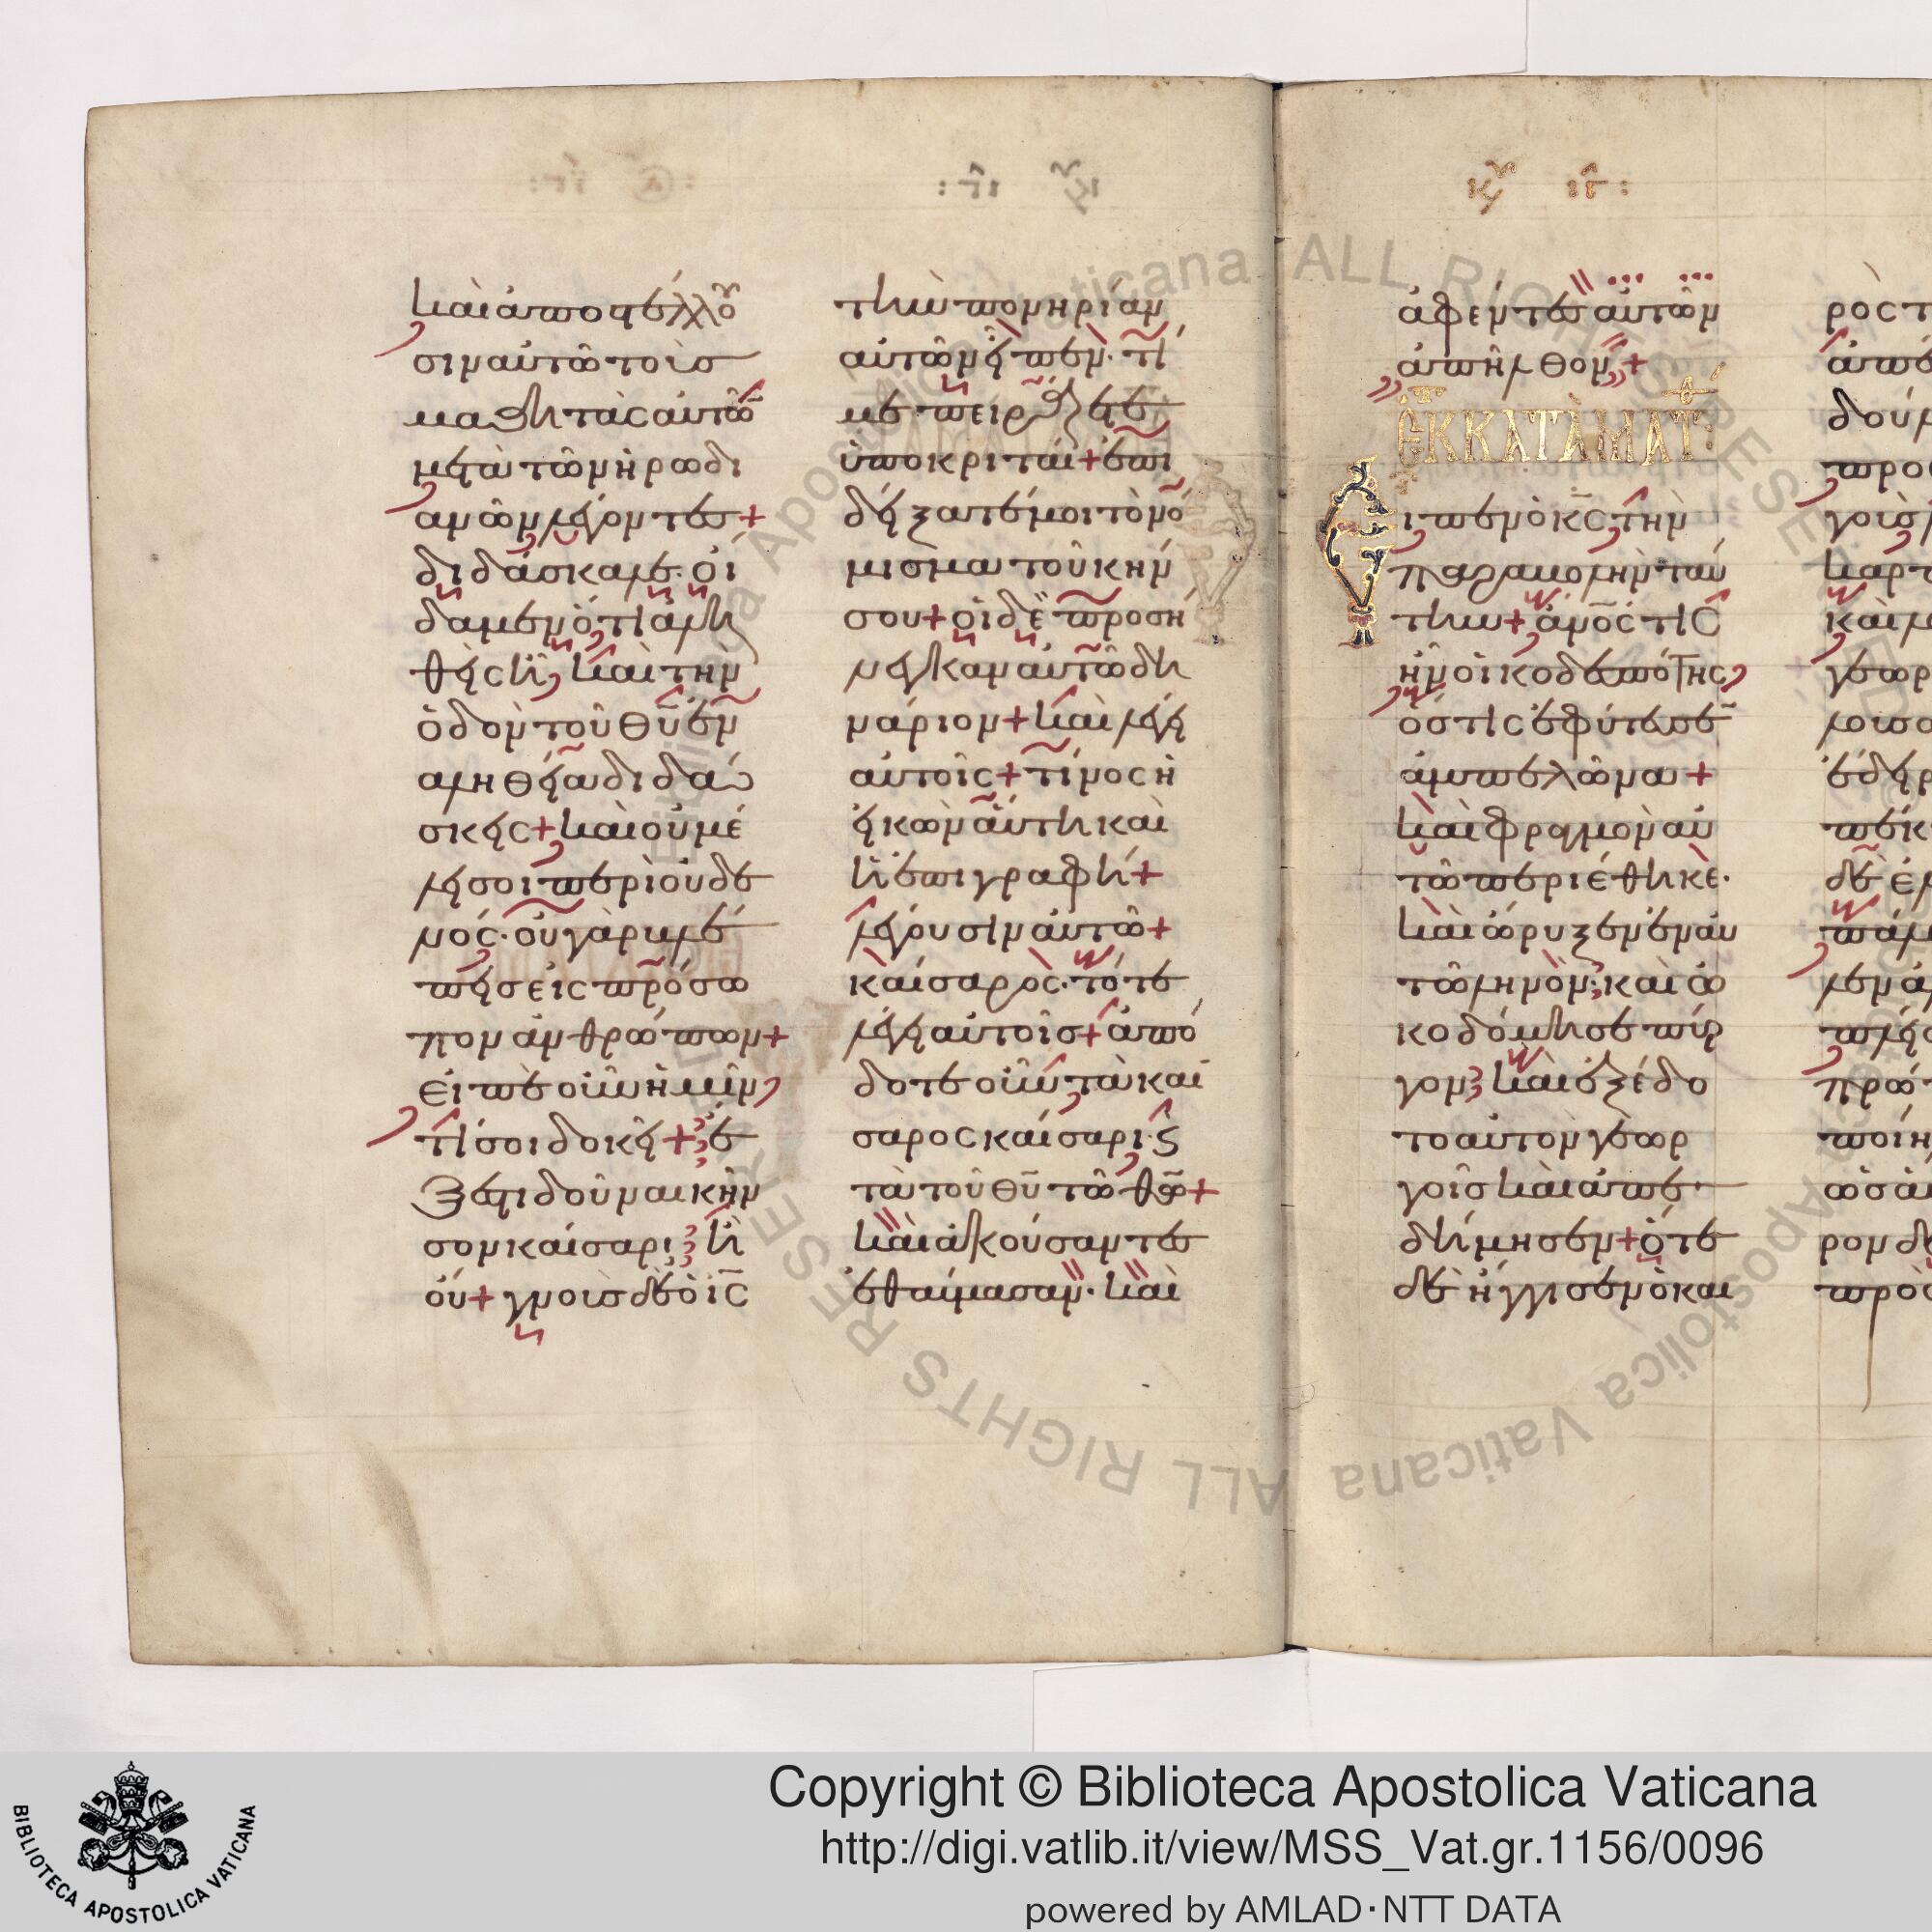 καὶ ἀποστέλλου
σιν αὐτῶ τοὺσ
μαθητὰς αὐτῶ
μετὰ τῶν ἡρωδι
ανῶν λέγοντες+
διδάσκαλε· οἴ
δαμεν ὅτι ἀλη
θὴς εἶ, καὶ τὴν
ὁδὸν τοῦ θῦ ἐν
ἀληθεία διδά
σκεις+ καὶ οὐ μέ
λει σοι περὶ οὐδε
νός· οὐ γὰρ βλέ
πεις εἰς πρόσω
πον ἀνθρώπων+
εἰπὲ οὖν ἡμῖν,
τί σοι δοκεῖ+ ἔ
ξεστι δοῦναι κῆν
σον καίσαρι; ἢ
οὔ+ γνοὺσ δὲ ὁ ις
τὴν πονηρίαν
αὐτῶν εἶπεν· τί
με πειράζετε
ὑποκριταί+ ἐπι
δείξατέ μοι τὸ νό
μισμα τοῦ κήν
σου+ οἱ δὲ προσή
νεγκαν αὐτῶ δη
νάριον+ καὶ λέγει
αὐτοῖς+ τίνος ἡ
εἰκὼν αὕτη καὶ
ἡ ἐπιγραφή+
λέγουσιν αὐτῶ+
καίσαρος· τότε
λέγει αὐτοῖσ+ ἀπό
δοτε οὖν τὰ καί
σαρος καίσαρι· ϛ
τὰ τοῦ θῦ τῶ θῶ+
καὶ ἀκούσαντες
ἐθαύμασαν· καὶ
κυ ιγ:
ἀφέντες αὐτὸν
ἀπῆλθον+
ἐκ κατὰ ματ:
Εἶπεν ὁ κς τὴν
παραβολὴν ταύ
την+ ἄνος τις
ἦν οἰκοδεσπότης,
ὅστις ἐφύτευσε
ἀμπελῶνα+
καὶ φραγμὸν αὐ
τῶ περιέθηκε·
καὶ ὤρυξεν ἐν αὐ
τῶ ληνὸν; καὶ ὠ
κοδόμησε πύρ
γον; καὶ ἐξέδο
το αὐτὸν γεωρ
γοῖσ καὶ ἀπε
δήμησεν+ ὅτε
δὲ ἤγγισεν ὁ και
Copyright © Biblioteca Apostolica Vaticana
http://digi.vatlib.it/view/MSS_Vat.gr.1156/0096
powered by AMLAD·NTT DATA
BIBLIOTECA APOSTOLICA VATICANA